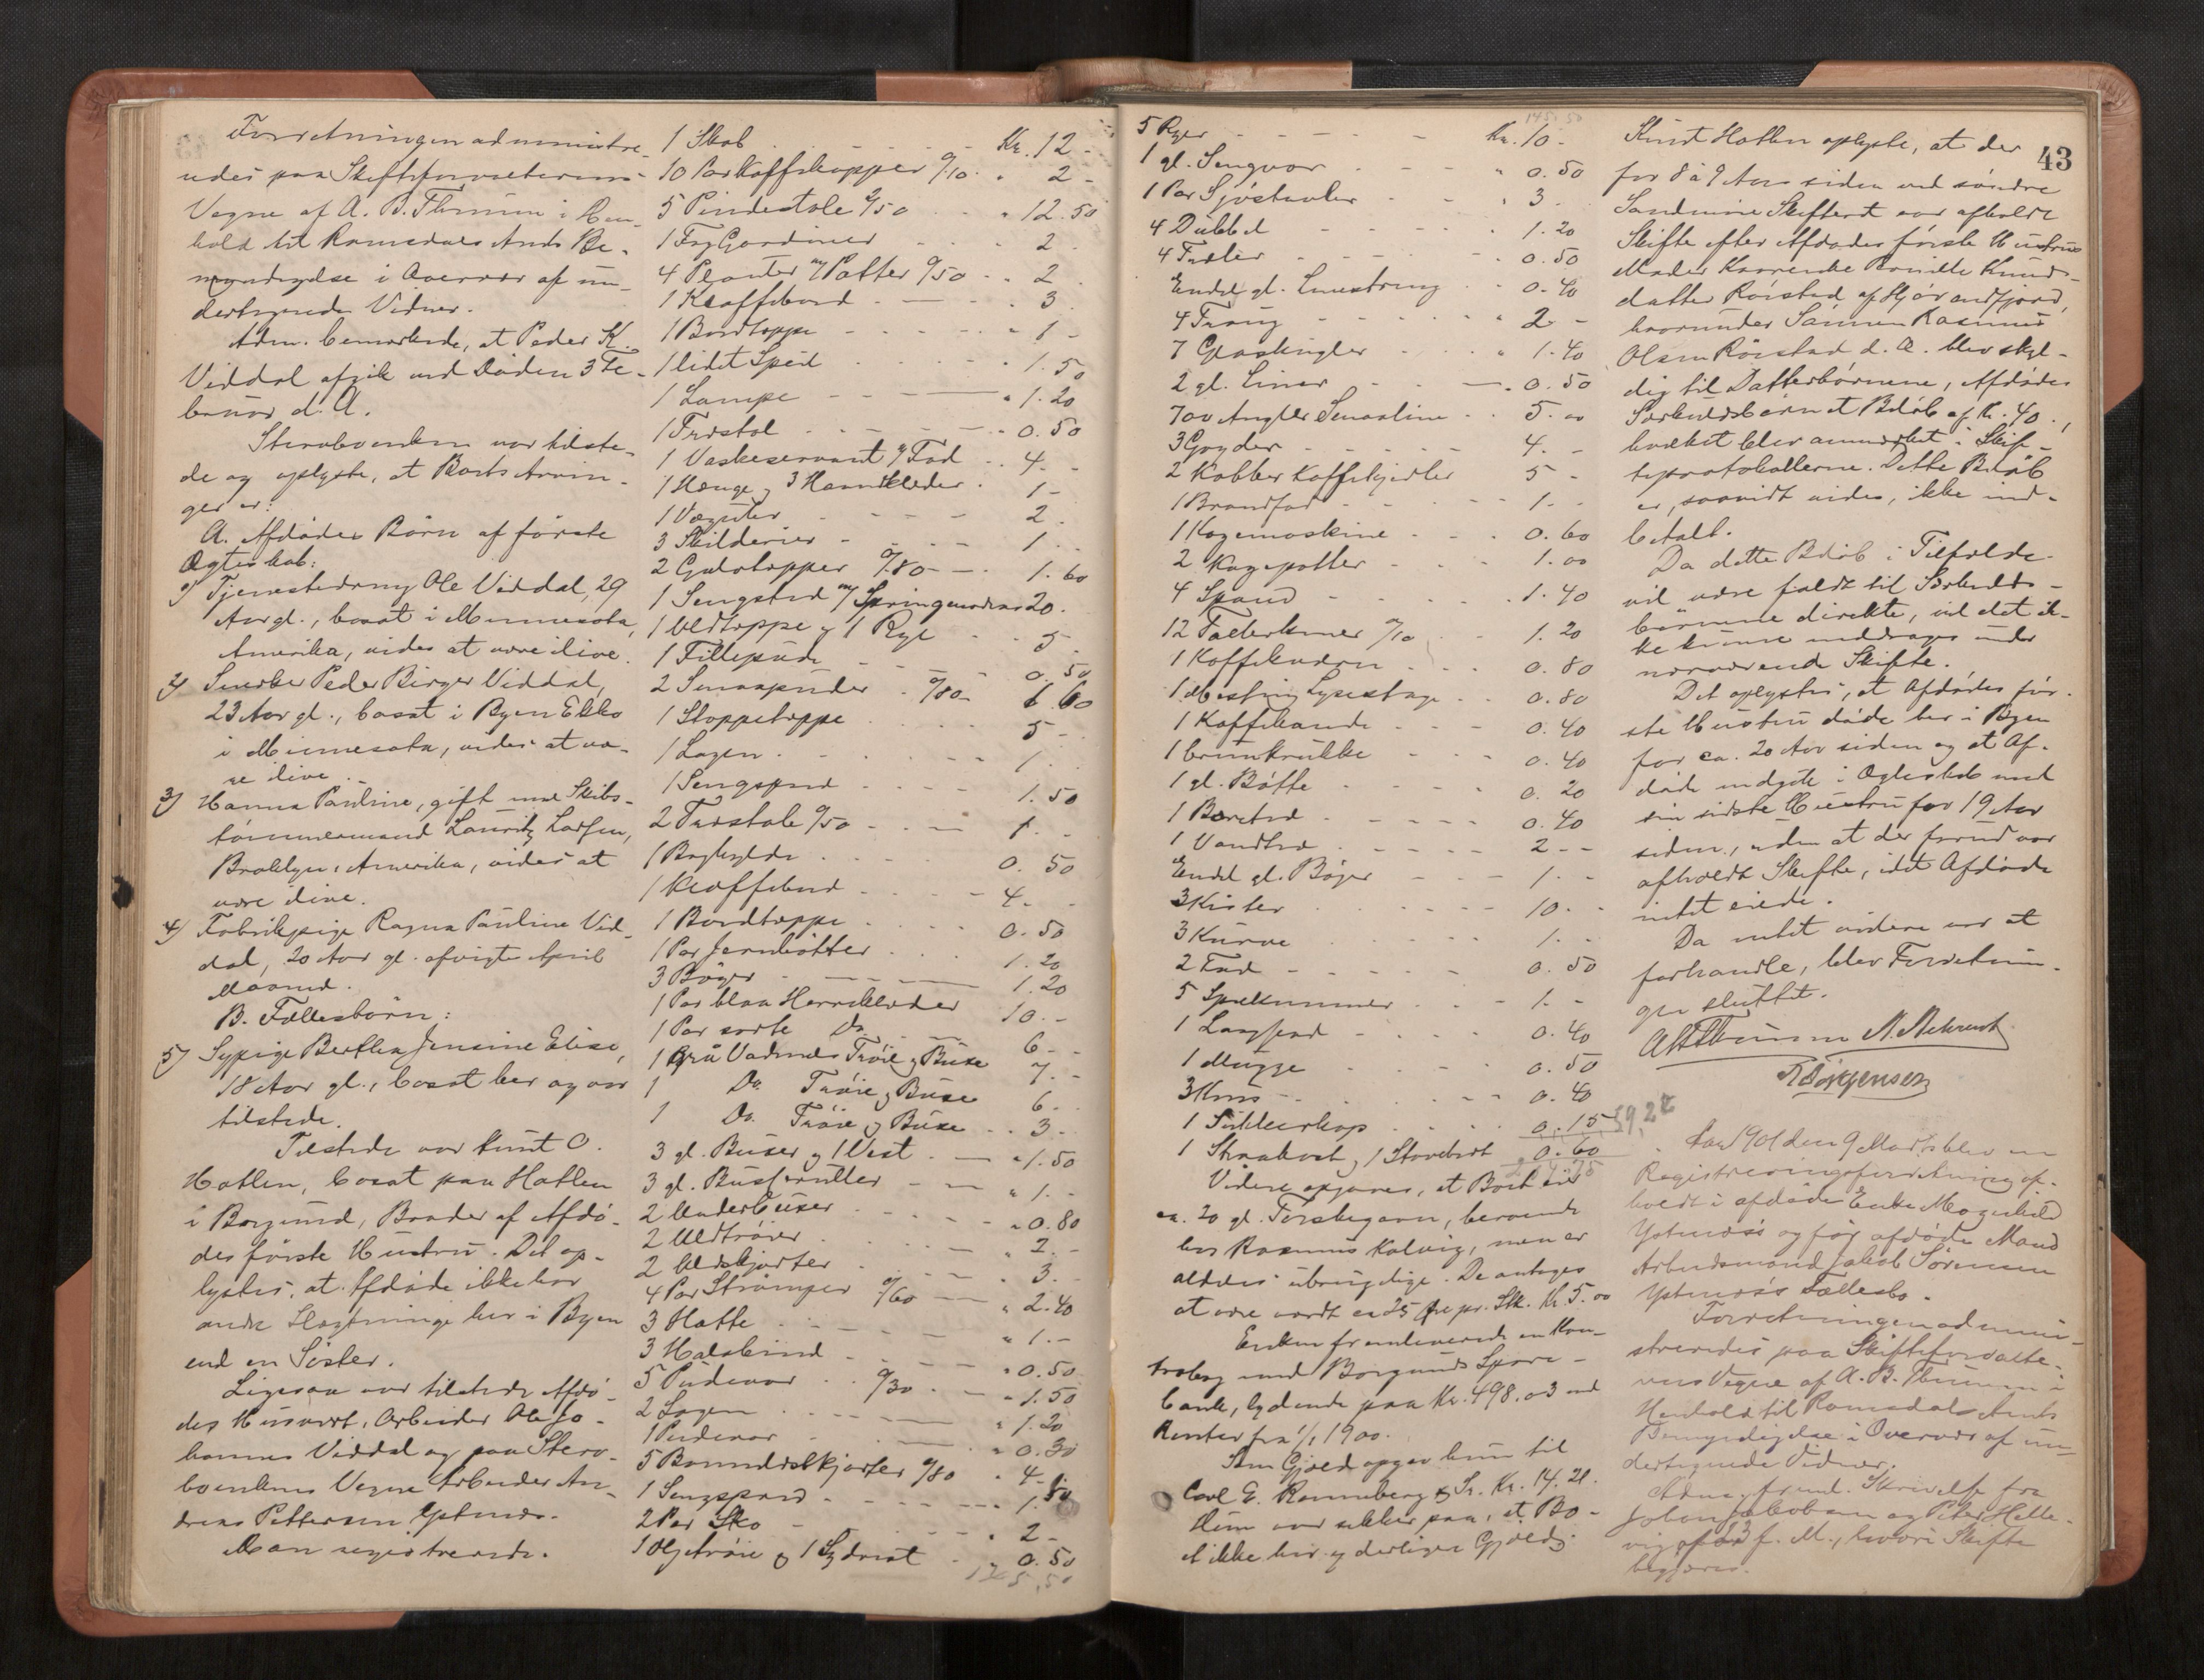 Forretningen administre-
redes paa Skifteforvalterens
Vegne af A. B. Thunem i Hen-
hold til Romsdals Amts Be-
myndigelse i Overvær af un-
dertegnede Vidner.
Adm. bemærkede, at Peder K.
Viddal afgik ved Døden 3 Fe-
bruar d. A.
Stervboenken var tilste-
de og oplyste, at Boets Arvin-
ger er:
A. Afdødes Børn af første
Ægteskab:
1) Tjenestedreng Ole Viddal, 29
Aar gl., bosat i Minnesota,
Amerika, vides at være ilive.
2) Snedker Peder Birger Viddal,
23 Aar gl., bosat i Byen
i Minnesota, vides at væ-
re ilive.
3) Hanna Pauline, gift med Skibs-
tømmermand Lauritz Larsen,
Broklyn, Amerika, vides at
være ilive.
4) Fabrikpige Ragna Pauline Vid-
dal, 20 Aar gl. afvigte April
Maaned.
B. Fællesbørn:
5) Sypige Bertha Jensine Elise,
18 Aar gl., bosat her og var
tilstede.
Tilstede var Knut O.
Hatlen, bosat paa Hatlen
i Borgund, Broder af Afdø-
des første Hustru. Det op-
lystes, at Afdøde ikke har
andre Slægtninge her i Byen
end en Søster.
Ligesaa var tilstede Afdø-
des Husvært, Arbeider Ole Jo-
hannes Viddal og paa Sterv-
boenkens Vegne Arbeider An-
dreas Pettersen Ystenæs.
Man registrerede.
1 Skab Kr. 12 -
10 Par Kaffekopper " 2 -
5 Pindestole 2/50 " 12.50
1 Fag Gardiner 2
4 Planter m/ Potter 0/50 2
1 Klaffebord 3
1 Bordteppe " 1 -
1 lidet Speil 1.50
1 Lampe " 1.20
1 Træstol 0.50
1 Vaskeservant m/ Fad 4. -
1 Hænge og 3 Haandklæder 1 -
1 Vægter 2
3 Skilderier 1
2 Gulvtepper 0/80 1.60
1 Sengsted m/ Springmadras 20.
1 Uldteppe og 1 Rye 5
1 Fillepude 0.50
2 Smaapuder 0/80 1.60
1 Stoppeteppe 5 -
1 Lagen 1
1 Sengspred 1.50
2 Træstole 0/50 1. -
1 Boghylde 0.50
1 Klaffebord 4. -
1 Bordteppe 0.50
1 Par Jernbøtter 1.20
3 Bøger 1.20
1 Par blaa Herreklæder 10. -
1 Par sorte Do 6 -
1 Grå Vadmels Trøie og Buxe 7. -
1 Do. Trøie og Buxe 6 -
1 Do. Trøie og Buxe 3 -
3 gl. Buxer og 1 Vest " 1.50
3 gl. Busseruller " 1. -
2 Underbuxer " 0.80
2 Uldtrøier " 2. -
2 Uldskjorter 3. -
4 Par Strømper 0/60 " 2.40
3 Hatte " 1. -
3 Halsbind " 0.50
5 Pudevar 0/30 " 1.50
2 Lagen " 1.20
1 Pudevar " 0.30
5 Bomuldskjorter 0/80 " 4 -
1 Sengspred 1.50
2 Par Sko " 2 -
1 Oljetrøie og 1 Sydvest " 0.50
145.50
145.50
5 Ryer Kr. 10 -
1 gl. Sengvar " 0.50
1 Par Sjøstøvler 3
4 Dubbel 1.20
4 0.50
Endel gl. 0.40
4 Traug " 2 -
7 Glaskugler " 1.40
2 gl. Liner 0.50
700 Angler Smaaline 5.00
3 Gryder 4. -
2 Kobber Kaffekjedler 5 -
1 Brandfad 1. -
1 Kogemaskine 0.60
2 Kogepotter 1.00
4 Spand 1.40
12 Tallerkener 0/10 1.20
1 Kaffekværn 0.80
1 Messing Lysestage 0.80
1 Kaffekande 0.40
1 brunkrukke 0.40
1 gl. Bøtte 0.20
1 0.40
1 2 - -
Endel gl. Bøger 1. -
3 Kister 10. -
3 Kurve 1. -
2 Fad 0.50
5 Spilkummer 1. -
1 0.40
1 Mugge 0.50
3 Krus 0.40
1 0.15
1 Straakost og 1 Støvebræt 0.60
Videre opgaves, at Boet eier
ca. 20 gl. Torskegarn, beroende
hos Rasmus Kalvig, men er
aldeles ubrugelige. De antages
at være værdt ca 25 Øre pr. Stk. Kr. 5.00
Enken fremleverede en Kon-
trabog med Borgunds Spare-
bank, lydende paa Kr. 498.03 med
Renter fra 1/1 1900.
Som Gjæld opgav hun til
Carl E. Rønneberg & Sr. Kr. 14.21.
Hun var sikker paa, at Bo-
et ikke har yderligere Gjæld.
43
Knut Hatlen oplyste, at der
for 8 à 9 Aar siden ved søndre
Søndmøre Skifteret var afholdt
Skifte efter Afdødes første Hustrus
Moder Karenke Knuds-
datter Rørstad af Hjørundfjord,
hvorunder Sønnen Rasmus
Olsen Rørstad d. Æ. blev skyl-
dig til Datterbørnene, Afdødes
Særkuldsbørn et Beløb af Kr. 40,
hvilket blev anmærket i Skif-
teprotokollerne. Dette Beløb
er, saavidt vides, ikke ind-
betalt.
Da dette Beløb i Tilfælde
vil være faldt til Særkulds-
børnene direkte, vil det ik-
ke kunne inddrages under
nærværende Skifte.
Det oplystes, at Afdødes før-
ste Hustru døde her i Byen
for ca. 20 Aar siden og at Af-
døde indgik i Ægteskab med
sin sidste Hustru for 19 Aar
siden, uden at der forud var
afholdt Skifte, idet Afdøde
intet eiede.
Da intet videre var at
forhandle, blev Forretnin-
gen sluttet.
A B Thunem N. Rekvest
Jørgensen
Aar 1901 den 9 Marts blev en
Registreringsforretning af-
holdt i afdøde Enke Magnhild
Ystenæs's og før afdøde Mand
Arbeidsmand Jakob Sørensen
Ystenæs's Fællesbo.
Forretningen admini-
streredes paa Skifteforvalte-
rens Vegne af A. B. Thunem i
Henhold til Romsdals Amts
Bemyndigelse i Overvær af un-
dertegnede Vidner.
Adm. freml. Skrivelse fra
Johan Jakobsen og Peter Helle-
vig af 23 f. M., hvori Skifte
begjæres.